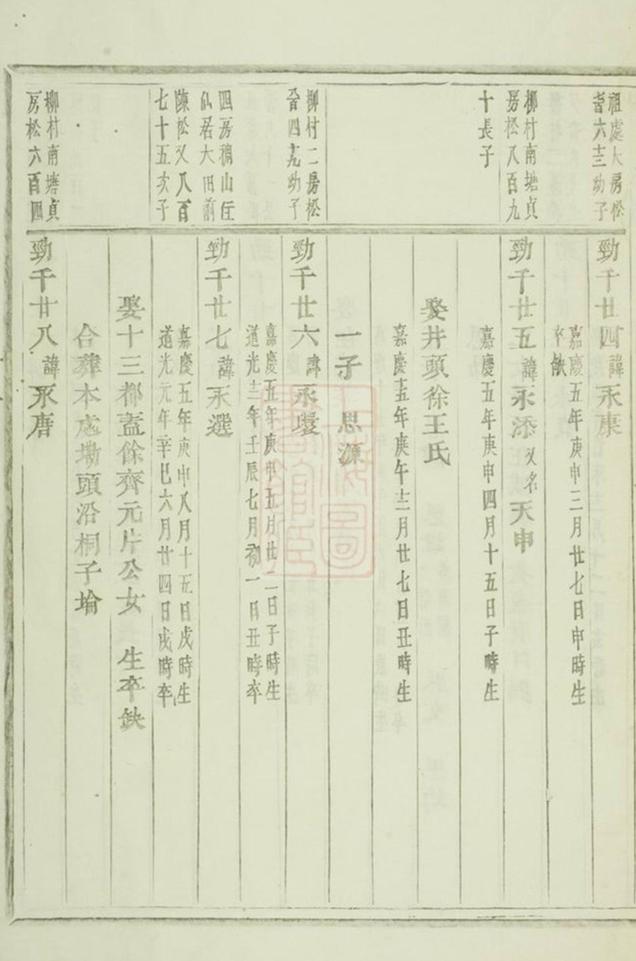 祖處大房松
晉六十三幼子
勁千廿四諱永康
嘉慶五年庚申三月廿七日申時生
卒缺
柳村南塘貞
房松八百九
十長子
勁千廿五諱永添又名天申
嘉慶五年庚申四月十五日子時生
娶井頭徐王氏
嘉慶十五年庚午十二月廿七日丑時生
一子 思源
柳村二房松
晉四十九幼子
勁千廿六諱永瓊
嘉慶五年庚申五月廿二日子時生
道光十二年壬辰七月初一日丑時卒
四房鶴山任
仙居大田前
陳松又八百
七十五次子
勁千廿七諱永選
嘉慶五年庚申八月十五日戌時生
道光元年辛巳六月廿四日戌時卒
娶十三都蓋餘齊元片公女 生卒缺
合葬本處坳頭沿桐子堬
柳村南塘貞
房松六百四
勁千廿八諱永唐